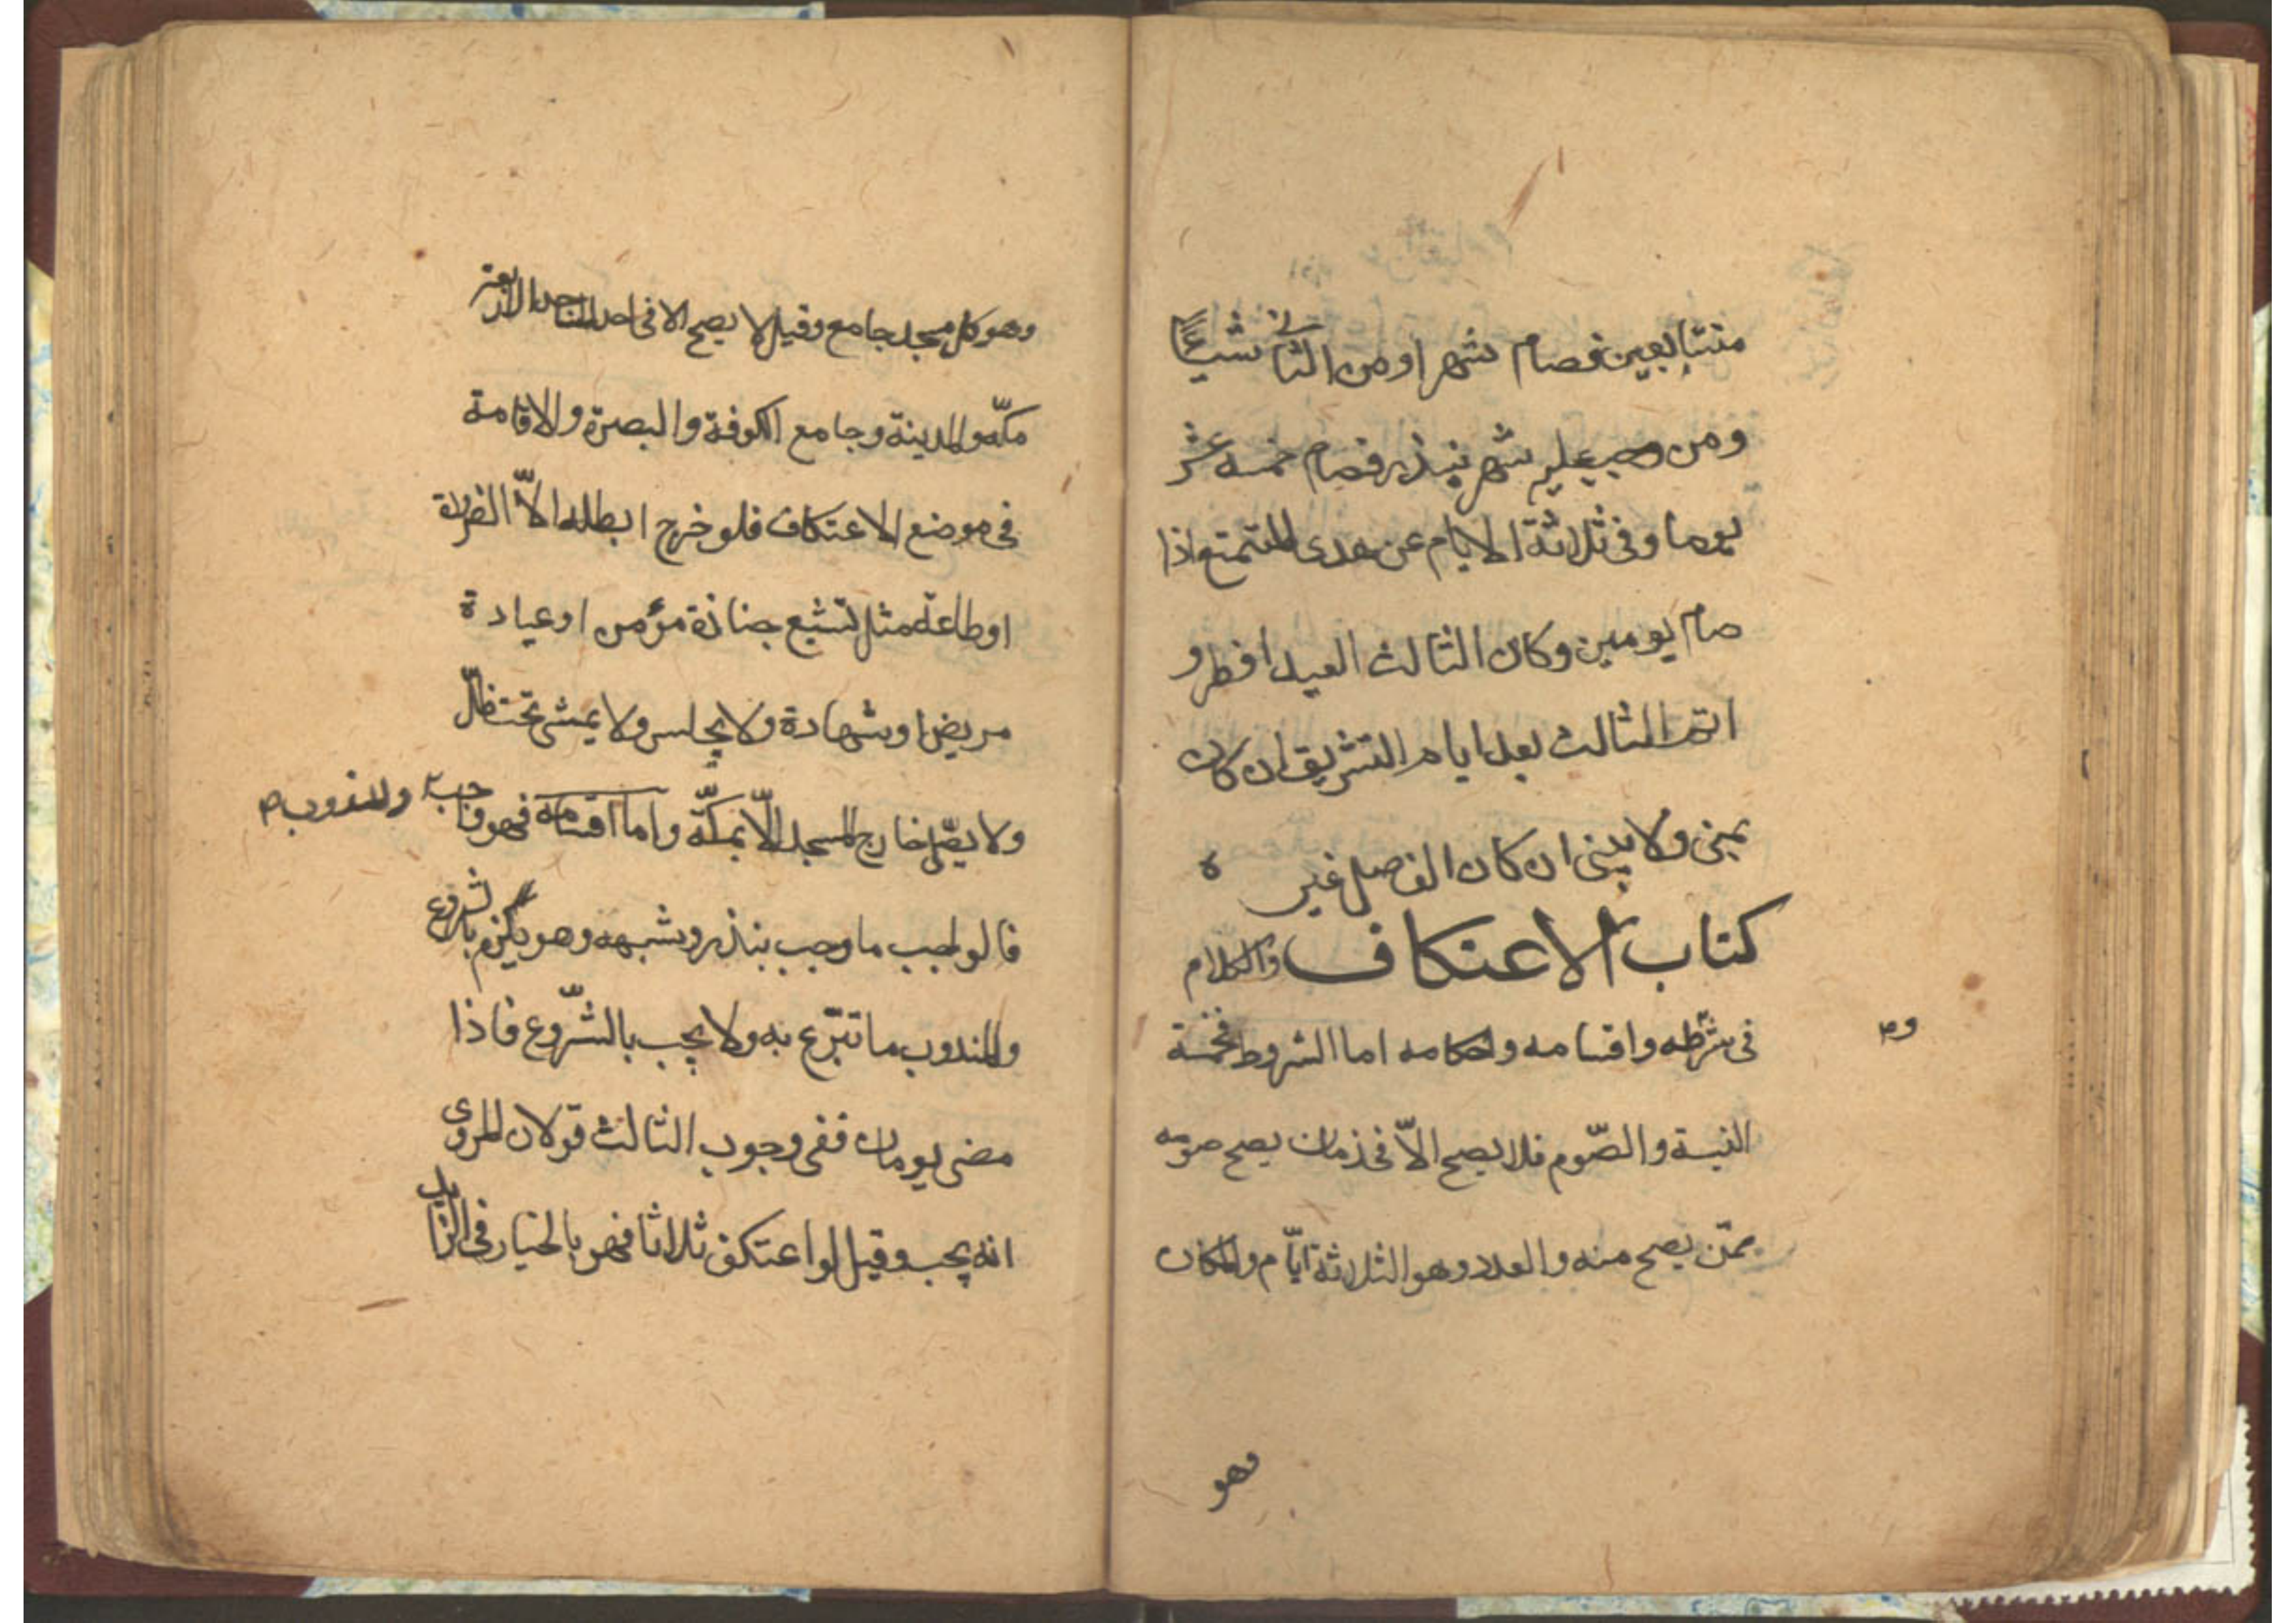 متتابعين فصام شهرا ومن الثاني شيئًا
ومن وجب عليه شهر بنذر فصام خمسة عشر
يوما وفى ثلاثة الايام عن هدى المتمتع اذا
صام يومين وكان الثالث العيد افطر و
اتم الثالث بعد ايام التشريق ان كان
بمنى ولا يبنى ان كان الفاصل غيره
كتاب الاعتكاف والكلام
فى شرطه واقسامه واحكامه اما الشروط فخمسة
النية والصّوم فلا يصح الاّ فى زمان يصح صومه
ممّن يصح منه والعدد وهو الثلاثة ايّام والمكان
وهو
وهو كل مسجد جامع وقيل لا يصح الا فى احد المساجد الاربعة
مكّه والمدينة وجامع الكوفة والبصرة والاقامة
فى موضع الاعتكاف فلو خرج ابطله الاّ لضرورة
او طاعة مثل تشيع جنازة مؤمن او عيادة
مريض او شهادة ولا يجلس ولا يمشى تحت ظلّ
ولا يصّل خارج المسجد الاّ بمكّة واما اقسامه فهو واجب ومندوب
فالواجب ما وجب بنذر وشبهه وهو يلزم بالشروع
والمندوب ما تبّرع به ولا يجب بالشّروع فاذا
مضى يومان ففى وجوب الثالث قولان المروى
انه يجب وقيل لو اعتكف ثلاثا فهو بالخيار فى الزايد